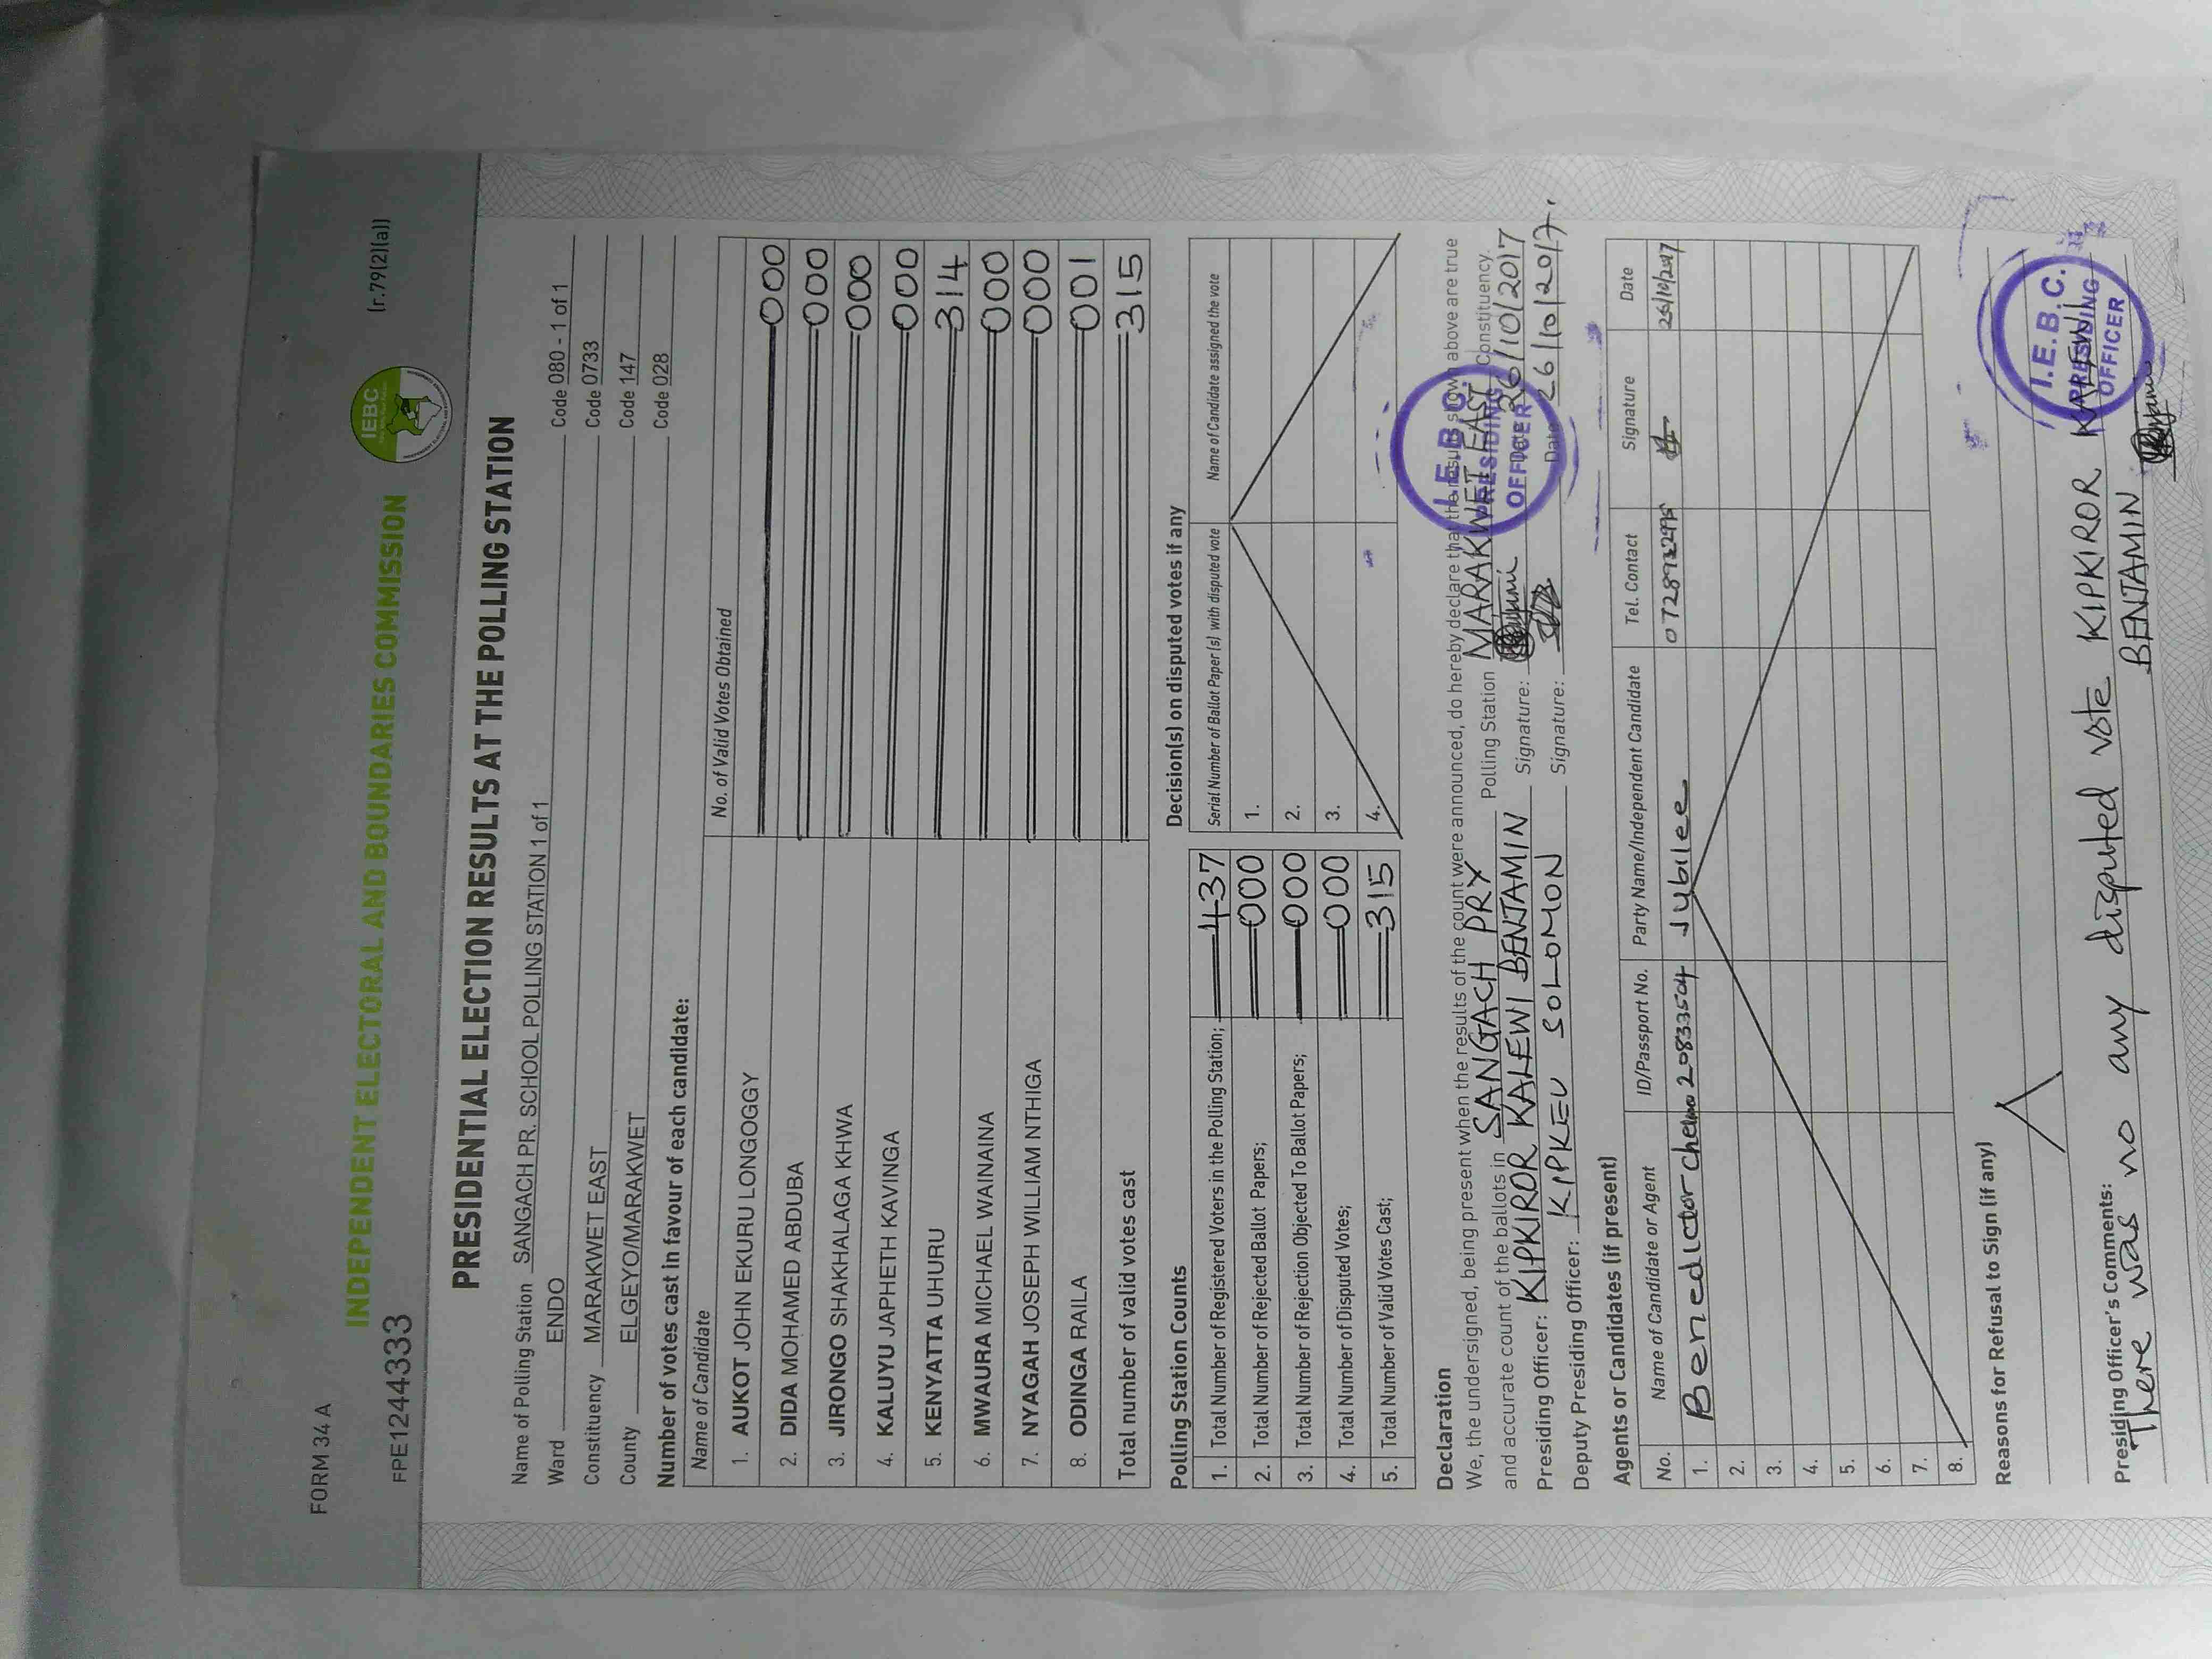 FORM 34 A
(r.79(2)(a))
IEBC
INDEPENDENT ELECTORAL AND BOUNDARIES COMMISSION
FPE1244333
PRESIDENTIAL ELECTION RESULTS AT THE POLLING STATION
Name of Polling Station SANGACH PR. SCHOOL POLLING STATION 1 of 1 Code 080 - 1 of 1
Ward ENDO Code 0733
Constituency MARAKWET EAST Code 147
County ELGEYO/MARAKWET Code 028
Number of votes cast in favour of each candidate:
Name of Candidate No. of Valid Votes Obtained
1. AUKOT JOHN EKURU LONGOGGY 000
2. DIDA MOHAMED ABDUBA 000
3. JIRONGO SHAKHALAGA KHWA 000
4. KALUYU JAPHETH KAVINGA 000
5. KENYATTA UHURU 314
6. MWAURA MICHAEL WAINAINA 000
7. NYAGAH JOSEPH WILLIAM NTHIGA 000
8. ODINGA RAILA 001
Total number of valid votes cast 315
Polling Station Counts
1. Total Number of Registered Voters in the Polling Station; 437
2. Total Number of Rejected Ballot Papers; 000
3. Total Number of Rejection Objected To Ballot Papers; 000
4. Total Number of Disputed Votes; 000
5. Total Number of Valid Votes Cast; 315
Decision(s) on disputed votes if any
Serial Number of Ballot Paper (s) with disputed vote Name of Candidate assigned the vote
1.
2.
3.
4.
Declaration
We, the undersigned, being present when the results of the count were announced, do hereby declare that the results shown above are true
and accurate count of the ballots in SANGACH PRY Polling Station MARAKWET EAST Constituency.
Presiding Officer: KIPKIROR KALEWI BENJAMIN Signature: Date 26/10/2017
Deputy Presiding Officer: KIPKEU SOLOMON Signature: Date 26/10/2017.
I.E.B.C.
PRESIDING
OFFICER
Agents or Candidates (if present)
No. Name of Candidate or Agent ID/Passport No. Party Name/Independent Candidate Tel. Contact Signature Date
1. Benedictor 20833504 Jubilee 26/10/2017
2.
3.
4.
5.
6.
7.
8.
Reasons for Refusal to Sign (if any)
Presiding Officer's Comments:
There was no any disputed vote KIPKIROR KALEWI
BENJAMIN
I.E.B.C.
PRESIDING
OFFICER